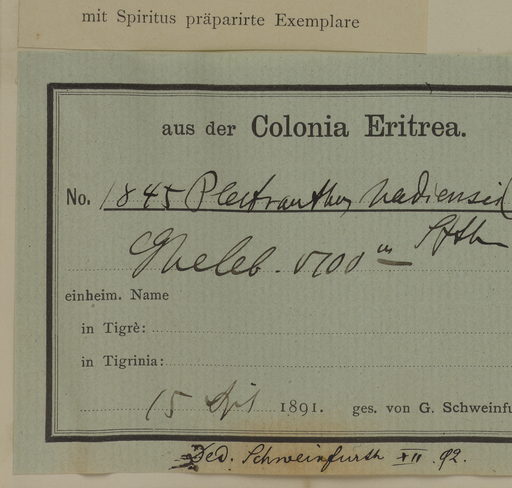 mit Spiritus präparirte Exemplare
aus der Colonia Eritrea.
No. 1845 Plectranthus hadiensis
Sfth
Gheleb. 1700 m
einheim. Name
in Tigrè:
in Tigrinia:
15 1891. ges. von G. Schweinfu
Ded. Schweinfurth XII. 92.